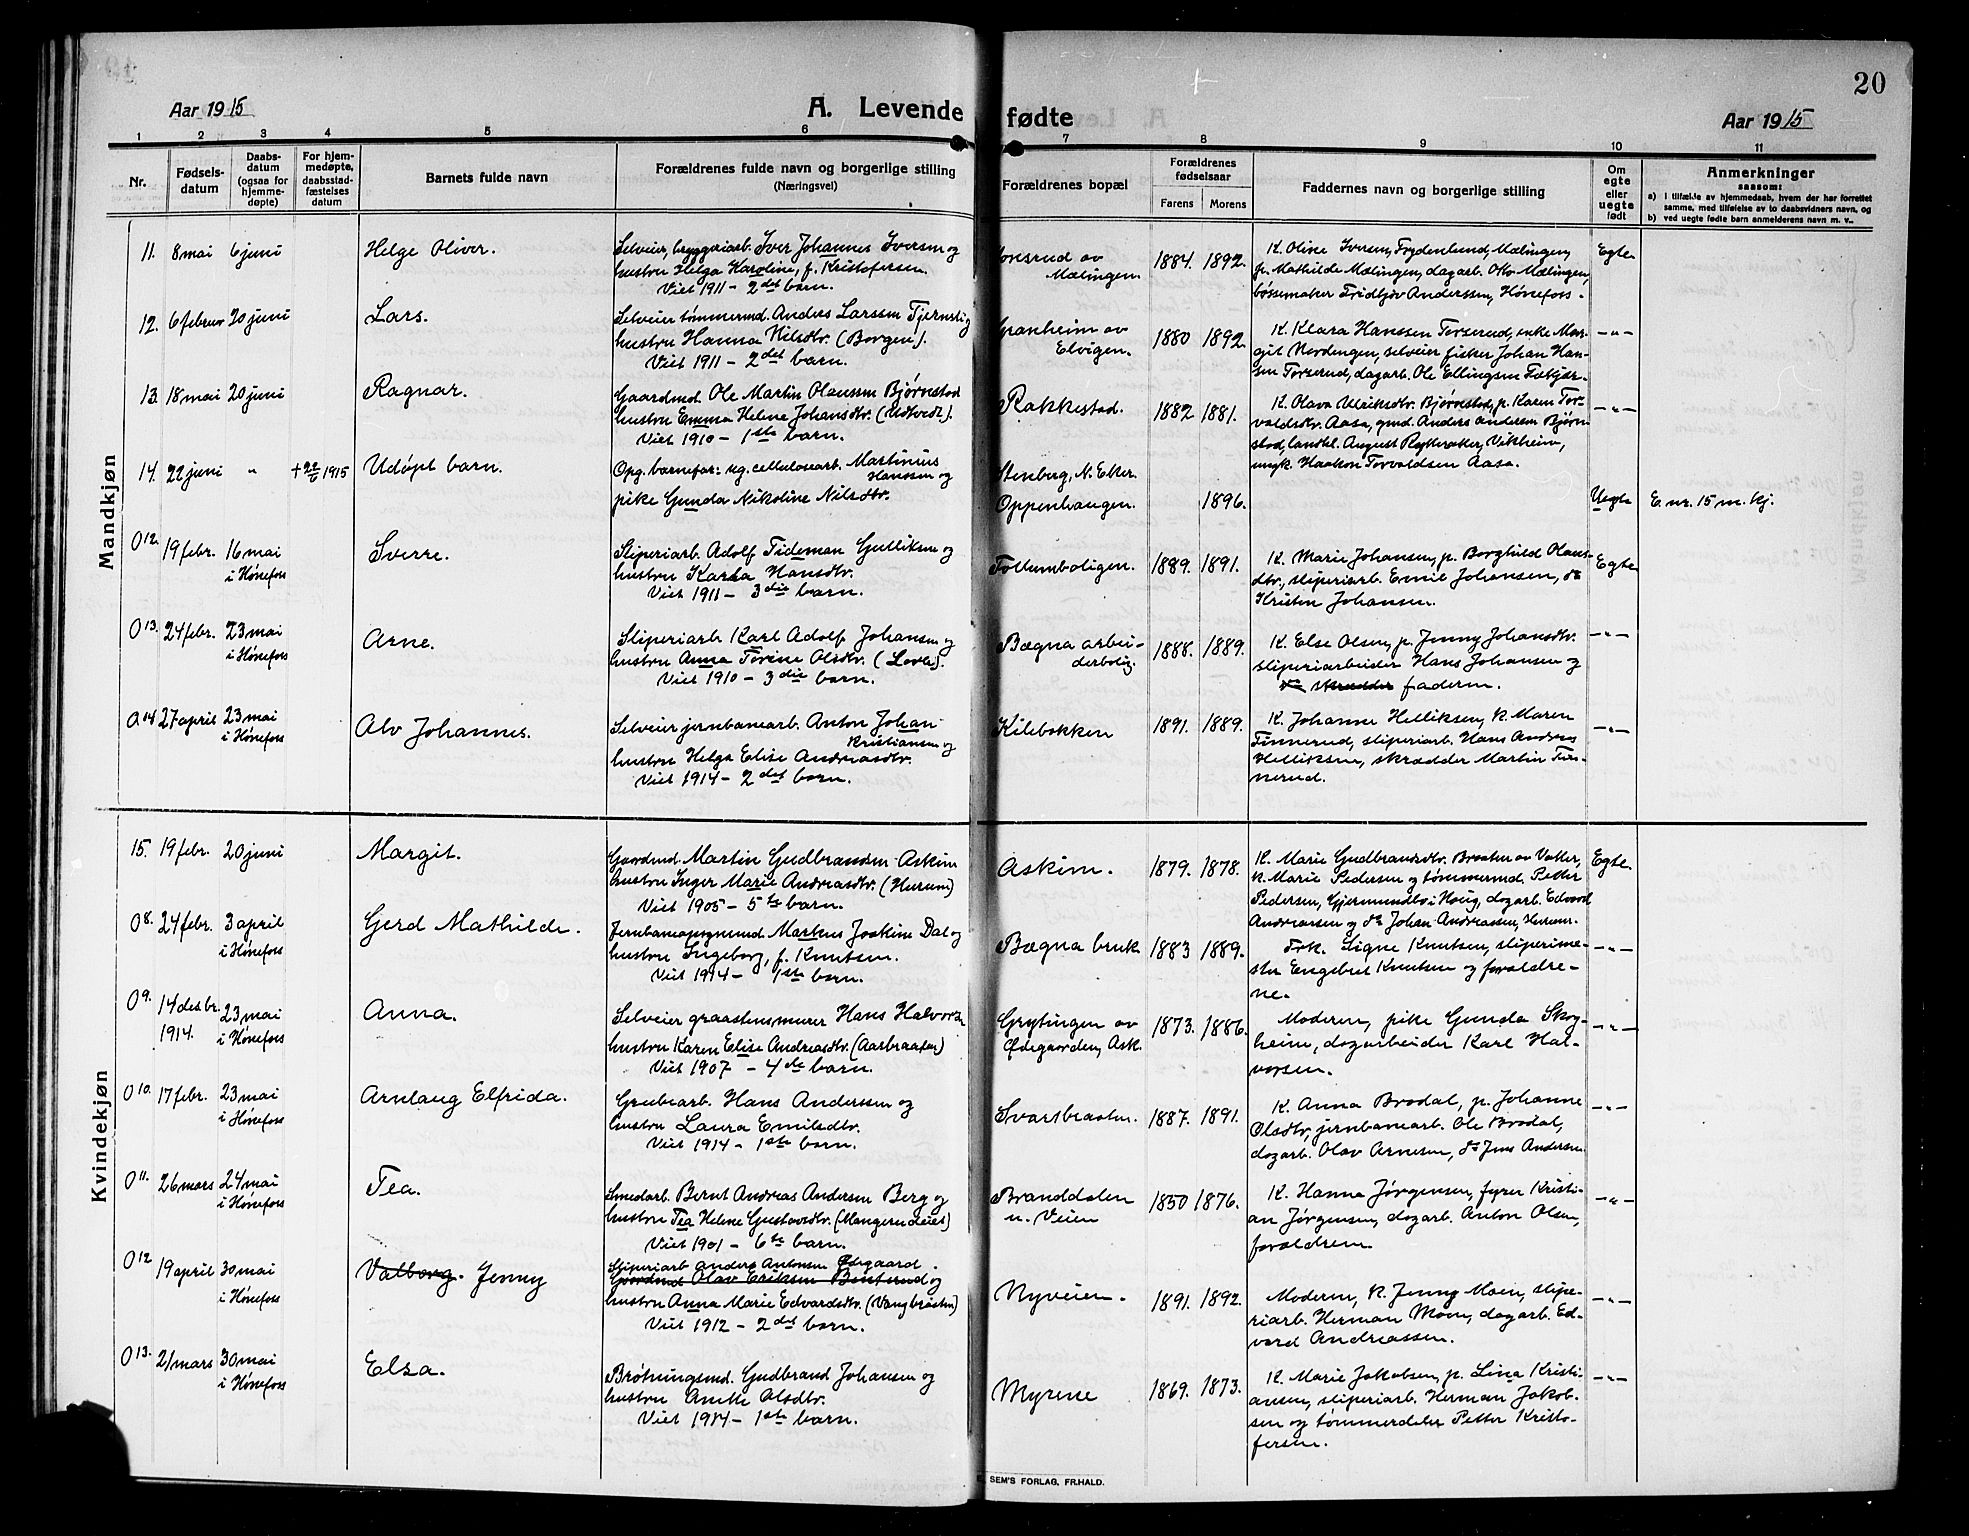 20
Aar 1915
A. Levende fødte
Aar 1915
1 2 3 4 5 6 7 8 9 10 11
Nr.
Fødsels-
datum
Daabs-
datum
(ogsaa for
hjemme-
døpte)
For hjem-
medøpte,
daabsstad-
fæstelses
datum
Barnets fulde navn
Forældrenes fulde navn og borgerlige stilling
(Næringsvei)
Forældrenes bopæl
Forældrenes
fødselsaar
Farens Morens
Faddernes navn og borgerlige stilling
Om
egte
eller
uegte
født
Anmerkninger
saasom:
a) I tilfælde av hjemmedaab, hvem der har forrettet
samme, med tilføielse av to daabsvidners navn, og
b) ved uegte fødte barn anmelderens navn m. v.,
Mandkjøn
11. 8 mai 6 juni
Helge Oliver.
Selveier, bryggeriarb. Iver Johannes Iversen og
hustru Helga Karoline, f. Kristofersen.
Viet 1911 - 2det barn.
av
Mælingen.
1884. 1892.
K. Olive Iversen, Frydenlund, Mælingen,
p. Mathilde Mælingen, dagarb. Otto Mælingen,
bøssemaker Fridtjov Anderssen, Hønefoss.
Egte
12. 6 februar 20 juni
Lars.
Selveier tømmermd. Anders Larssen Tjernsli og
hustru Hanna Nilsdtr. (Borgen).
Viet 1911 - 2det barn.
Granheim av
Elvigen.
1880 1892.
K. Klara Hanssen Torserud, enke Mar-
git Nordengen, selveier fisker Johan Han-
sen Torserud, dagarb. Ole Ellingsen
-"-
13. 18 mai 20 juni
Ragnar.
Gaardmd. Ole Martin Olaussen Bjørnstad
hustru Emma Helene Johansdtr. (Rudtvedt).
Viet 1910 - 1ste barn.
Rakkestad.
1882 1881.
K. Olava Ulriksdtr. Bjørnstad, p. Karen Tor-
valdsdtr. Aasa, gmd. Anders Andersen Bjørn-
stad, landhl. August Vikheim,
ungk. Haakon Torvaldsen Aasa.
-"-
14. 22 juni " + 22/6 1915
Udøpt barn.
Opg. barnefar: ug. cellulosearb. Martinius
Hanssen og
pike Gunda Nikoline Nilsdtr.
Stenberg, N. Eker.
Oppenhaugen.
1896.
Uegte
E. nr. 15 m. kj.
O 12. 19 febr. 16 mai
i Hønefoss
Sverre.
Sliperiarb. Adolf Tideman Gulliksen og
hustru Karla Hansdtr.
Viet 1911 - 3die barn.
Follumboligen.
1889. 1891.
K. Marie Johansen, p. Borghild Olaus-
dtr., sliperiarb. Emil Johansen, do
Kristen Johansen.
Egte
O 13. 24 febr. 23 mai
i Hønefoss
Arne.
Sliperiarb. Karl Adolf Johansen og
hustru Anna Torine Olsdtr. (Lova).
Viet 1910 - 3die barn.
Bægna arbei-
derbolig.
1888. 1889.
K. Else Olsen, p. Jenny Johansdtr.
sliperiarbeider Hans Johansen og
do skrædder faderen.
-"-
O 14 27 april 23 mai
i Hønefoss
Alv Johannes.
Selveier jernbanearb. Anton Johan
Kristiansen og
hustru Helga Elise Andreasdtr.
Viet 1914 - 2det barn.
Kilebakken
1891. 1889.
K. Johanne Helliksen, k. Maren
Finnerud, sliperiarb. Hans Andreas
Helliksen, skrædder Martin Fin-
nerud.
-"-
Kvindekjøn
15. 19 febr. 20 juni
Margit.
Gaardmd. Martin Gudbrandsen Askim
hustru Inger Marie Andreasdtr. (Hurum)
Viet 1905 - 5te barn.
Askim.
1879. 1878.
K. Marie Gudbrandsdtr. Braaten av Vaker,
k. Marie Pedersen og tømmermd. Petter
Pedersen, Gjermundbo i Houg, dagarb. Edvard
Andreassen og do Johan Andreassen, Hurum.
Egte.
O 8. 24 febr. 3 april
i Hønefoss
Gerd Mathilde.
Jernbaneopsynsmd. Markus Joakim Dal og
hustru Ingeborg, f. Knutsen.
Viet 1914 - 1ste barn.
Bægna bruk
1883 1889.
Frk. Signe Knutsen, sliperime-
ster Engebret Knutsen og forældre-
ne.
-"-
O 9. 14 desbr.
1914.
23 mai
i Hønefoss
Anna.
Selveier graastensmurer Hans Halvorsen
hustru Karen Elise Andreasdtr. (Aarbraaten)
Viet 1907 - 4de barn.
Grytingen av
Ødegaarden, Ask.
1873. 1886.
Moderen, pike Gunda Skog-
heim, dagarbeider Karl Hal-
vorsen.
-"-
O 10. 17 febr. 23 mai
i Hønefoss
Arnlaug Elfrida.
Grubearb. Hans Anderssen og
hustru Laura Emilsdtr.
Viet 1914 - 1ste barn.
Svartbraaten.
1887. 1891.
K. Anna Brodal, p. Johanne
Olsdtr., jernbanearb. Ole Brodal,
dagarb. Olav Arnesen, do Jens Andersen.
-"-
O 11. 26 mars 24 mai
i Hønefoss
Tea.
Smedarb. Bernt Andreas Andersen Berg og
hustru Tea Helene Gustavsdtr. (Mangerudeiet)
Viet 1901 - 6te barn.
Branddalen
u. Veien
1850 1876.
K. Hanna Jørgensen, fyrer Kristi-
an Jørgensen, dagarb. Anton Olsen,
forældrene.
-"-
O 12 19 april 30 mai
i Hønefoss
Valborg. Jenny
Sliperiarb. Anders Antonsen Ødegaard.
Gaardmd. Olav Eriksen Busterud og
hustru Anna Marie Edvardsdtr. (Vangbraaten)
Viet 1912 - 2det barn.
Nyveien.
1891. 1892.
Moderen, K. Jenny Moen, slipe-
riarb. Herman Moen, dagarb. Ed-
vard Andreassen.
-"-
O 13. 21 mars 30 mai
i Hønefoss
Elsa.
Brøtningsmd. Gudbrand Johansen og
hustru Anette Olsdtr.
Viet 1914 - 1ste barn.
Myrene
1869. 1873.
K. Marie Jakobsen, p. Lina Kristi-
ansen, sliperiarb. Herman Jakob-
sen og tømmerdeler Petter Kristo-
fersen.
-"-
SEM'S FORLAG, FR.HALD.